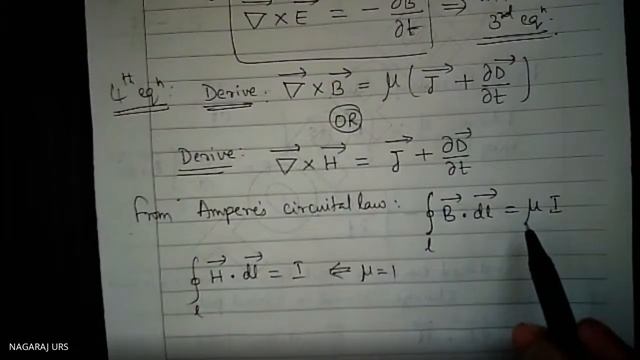 ∇ × E = - ∂B/∂t ⇒
3rd eqn
4th eqn: Derive: ∇ × B = μ(J + ∂D/∂t)
OR
Derive: ∇ × H = J + ∂D/∂t
From Ampere's circuital law: ∮l B · dl = μ I
∮l H · dl = I ⇐ μ = 1
NAGARAJ URS